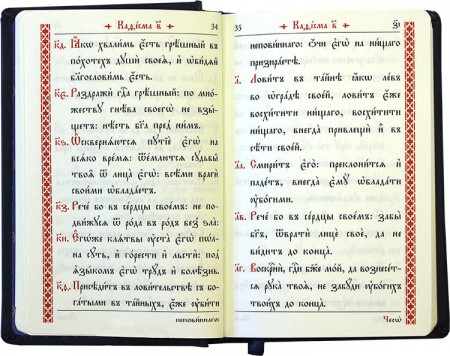 Каѳі́сма в҃ 34
к҃д. Ꙗ҆́кѡ хвали́мь є҆́сть грѣ́шный въ
по́хотехъ дꙋшѝ своеѧ̀, и҆ ѡ҆би́дѧй
благослови́мь є҆́сть.
к҃є. Раздражѝ гдⷭ҇а грѣ́шный: по мно́-
жествꙋ гнѣ́ва своегѡ̀ не взы́-
щетъ: нѣ́сть бг҃а пред̾ ни́мъ.
к҃ѕ. Ѡ҆сквернѧ́ютсѧ пꙋтїѐ є҆гѡ̀ на
всѧ́ко вре́мѧ: ѿе́млютсѧ сꙋдьбы̑
твоѧ̑ ѿ лица̀ є҆гѡ̀: всѣ́ми врагѝ
свои́ми ѡ҆блада́етъ.
к҃з. Рече́ бо въ се́рдцы свое́мъ: не по-
дви́жꙋсѧ ѿ ро́да въ ро́дъ без̾ ѕла̀:
к҃и. Є҆гѡ́же клѧ́твы ᲂу҆ста̀ є҆гѡ̀ пѡл-
на сꙋ́ть, и҆ го́рести и҆ льстѝ: под̾
ѧ҆зы́комъ є҆гѡ̀ трꙋ́дъ и҆ болѣ́знь.
к҃ѳ. Присѣди́тъ въ лови́тельствѣ съ бо-
га́тыми въ та́йныхъ, є҆́же ᲂу҆би́ти
непови́ннаго:
35 Каѳі́сма в҃
непови́ннаго: ѻ҆́чи є҆гѡ̀ на ни́щаго
призира́етѣ.
л҃. Лови́тъ въ та́йнѣ ꙗ҆́кѡ ле́въ
во ѡ҆гра́дѣ свое́й, лови́тъ є҆́же
восхи́тити ни́щаго, восхи́тити
ни́щаго, внегда̀ привлещѝ и҆̀ въ
сѣ́ти свое́й.
л҃а. Смири́тъ є҆го̀: преклони́тсѧ и҆
паде́тъ, внегда̀ є҆мꙋ̀ ѡ҆блада́ти
ᲂу҆бо́гими.
л҃в. Рече́ бо въ се́рдцы свое́мъ: забы̀
бг҃ъ, ѿвратѝ лицѐ своѐ, да не
ви́дитъ до конца̀.
л҃г. Воскрⷭ҇нѝ, гдⷭ҇и бж҃е мо́й, да вознесе́т-
сѧ рꙋка̀ твоѧ̀, не забꙋ́ди ᲂу҆бо́гихъ
твои́хъ до конца̀.
Чесѡ̀